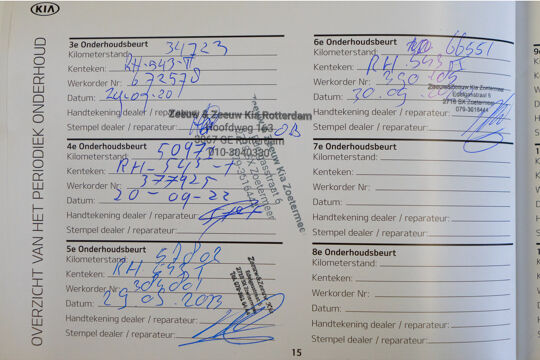 KIA
OVERZICHT VAN HET PERIODIEK ONDERHOUD
3e Onderhoudsbeurt
Kilometerstand: 34723
Kenteken: RH-543-T
Werkorder Nr:
Datum:
Handtekening dealer / reparateur:
Stempel dealer / reparateur:
Zeeuw & Zeeuw Kia Rotterdam
Hoofdweg 163
010-3040330
4e Onderhoudsbeurt
Kilometerstand:
Kenteken: RH-543-T
Werkorder Nr: 377925
Datum: 20-09-22
Handtekening dealer / reparateur:
Stempel dealer / reparateur:
Zeeuw Kia Zoetermeer
5e Onderhoudsbeurt
Kilometerstand:
Kenteken: RH 543 T
Werkorder Nr:
Datum: 29.09.2023
Handtekening dealer / reparateur:
Stempel dealer / reparateur:
6e Onderhoudsbeurt
Kilometerstand: 66551
Kenteken: RH 543 T
Werkorder Nr:
Datum:
Handtekening dealer / reparateur:
Stempel dealer / reparateur:
Zeeuw&Zeeuw Kia Zoetermeer
Edelgasstraat 6
2718 SX Zoetermeer
7e Onderhoudsbeurt
Kilometerstand:
Kenteken:
Werkorder Nr:
Datum:
Handtekening dealer / reparateur:
Stempel dealer / reparateur:
8e Onderhoudsbeurt
Kilometerstand:
Kenteken:
Werkorder Nr:
Datum:
Handtekening dealer / reparateur:
Stempel dealer / reparateur:
15